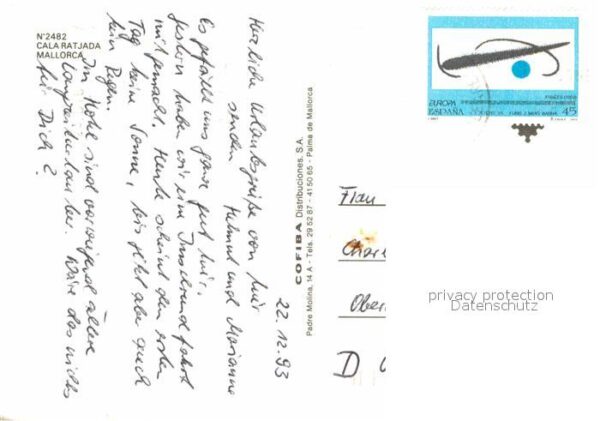 N°2482
CALA RATJADA
MALLORCA
22.12.93
Herzliche Urlaubsgrüße von hier
senden Helmut und Marianne
Es gefällt uns ganz gut hier.
Gestern haben wir eine Inselrundfahrt
mitgemacht. Heute scheint den ersten
Tag keine Sonne, bis jetzt aber auch
kein Regen.
Im Hotel sind vorwiegend ältere
Wäre das nichts
für Dich?
COFIBA Distribuciones, S.A.
Padre Molina, 14 A - Tels. 29 52 87 - 41 50 65 - Palma de Mallorca
EUROPA
ESPAÑA
45
Frau
Char
Ober
D
privacy protection
Datenschutz